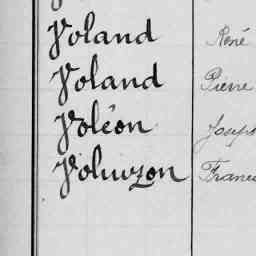 Voland René
Voland Pierre
Voléon Joseph
Voluvzon